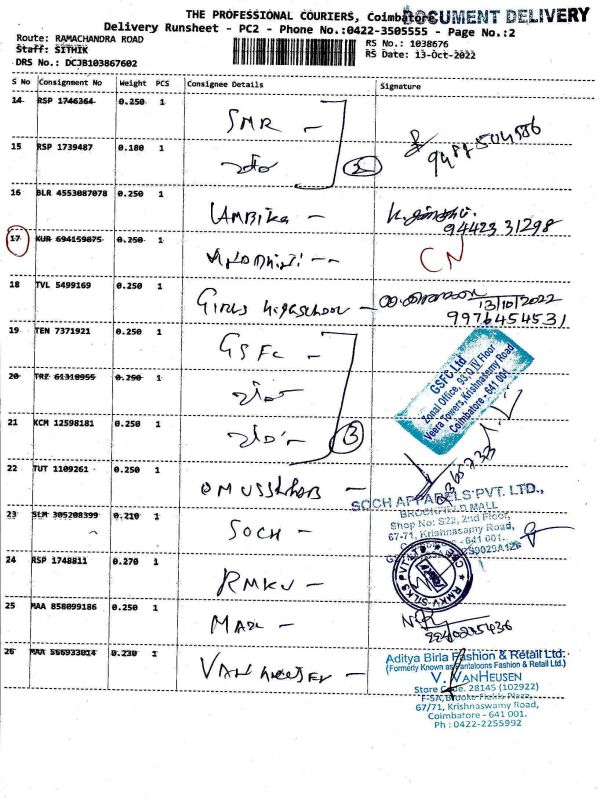 THE PROFESSIONAL COURIERS, Coimbatore
DOCUMENT DELIVERY
Delivery Runsheet - PC2 - Phone No.:0422-3505555 - Page No.:2
Route: RAMACHANDRA ROAD
RS No.: 1038676
Staff: SITHIK
RS Date: 13-Oct-2022
DRS No.: DCJB103867602
S No Consignment No Weight PCS Consignee Details Signature
14 RSP 1746364 0.250 1
SMR -
15 RSP 1739487 0.180 1
2
16 BLR 4553087078 0.250 1
Ambika -
94423 31298
17 KUR 694159875 0.250 1
CN
18 TVL 5499169 0.250 1
Girls Highschool -
13/10/2022
9976454531
19 TEN 7371921 0.250 1
GSFC -
GSFC Ltd
Zonal Office, 93,Q IV Floor
Veera Towers,Krishnasamy Road
Coimbatore - 641 001
20 TRZ 61318955 0.250 1
21 KCM 12598181 0.250 1
3
22 TUT 1109261 0.250 1
23 SLM 305208399 0.210 1
SOCH -
SOCH APPARELS PVT. LTD.,
BROOKFIELD MALL
Shop No: S22, 2nd Floor,
67-71, Krishnasamy Road,
- 641 001.
24 RSP 1748811 0.270 1
RMKV -
RMKV-SILKS PVT LTD CBE
25 MAA 858099186 0.250 1
26 MAA 566933014 0.230 1
Van Heusen -
Aditya Birla Fashion & Retail Ltd.
(Formerly Known as Pantaloons Fashion & Retail Ltd.)
V. VANHEUSEN
Store Code. 28145 (102922)
F-5A, Brooke Fields Plaza,
67/71, Krishnaswamy Road,
Coimbatore - 641 001.
Ph : 0422-2255992